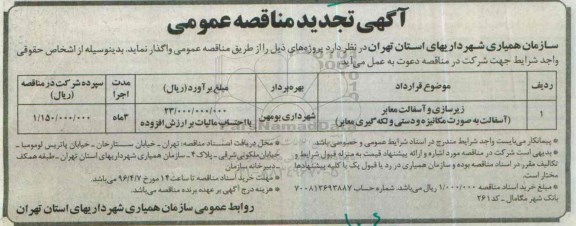 آگهی تجدید مناقصه عمومی
سازمان همیاری شهرداریهای استان تهران در نظر دارد پروژه‌های ذیل را از طریق مناقصه عمومی واگذار نماید. بدینوسیله از اشخاص حقوقی
واجد شرایط جهت شرکت در مناقصه دعوت به عمل می‌آید.
ردیف موضوع قرارداد بهره‌بردار مبلغ برآورد (ریال) مدت اجرا سپرده شرکت در مناقصه (ریال)
۱ زیرسازی و آسفالت معابر (آسفالت به صورت مکانیزه و دستی و لکه گیری معابر) شهرداری بومهن ۲۳/۰۰۰/۰۰۰/۰۰۰ با احتساب مالیات بر ارزش افزوده ۳ماه ۱/۱۵۰/۰۰۰/۰۰۰
* پیمانکار می‌بایست واجد شرایط مندرج در اسناد شرایط عمومی و خصوصی باشد.
* بدیهی است شرکت در مناقصه مورد اشاره و ارائه پیشنهاد قیمت به منزله قبول شرایط و
تکالیف مقرر در اسناد مناقصه بوده و سازمان همیاری در رد یا قبول یک یا کلیه پیشنهادها
مختار است.
* مبلغ خرید اسناد مناقصه ۱/۰۰۰/۰۰۰ ریال می‌باشد. شماره حساب ۷۰۰۸۱۳۶۹۳۸۸۷
بانک شهر مگامال ـ کد ۲۶۱
* محل دریافت اسناد مناقصه: تهران ـ خیابان ستارخان ـ خیابان پاتریس لومومبا ـ
خیابان ملکوتی شرقی ـ پلاک ۴ ـ سازمان همیاری شهرداریهای استان تهران ـ طبقه همکف
ـ دبیرخانه سازمان
* مهلت خرید اسناد مناقصه تا ساعت ۱۴ مورخ ۹۶/۴/۷ می‌باشد.
* هزینه درج آگهی بر عهده برنده مناقصه می‌باشد.
روابط عمومی سازمان همیاری شهرداریهای استان تهران